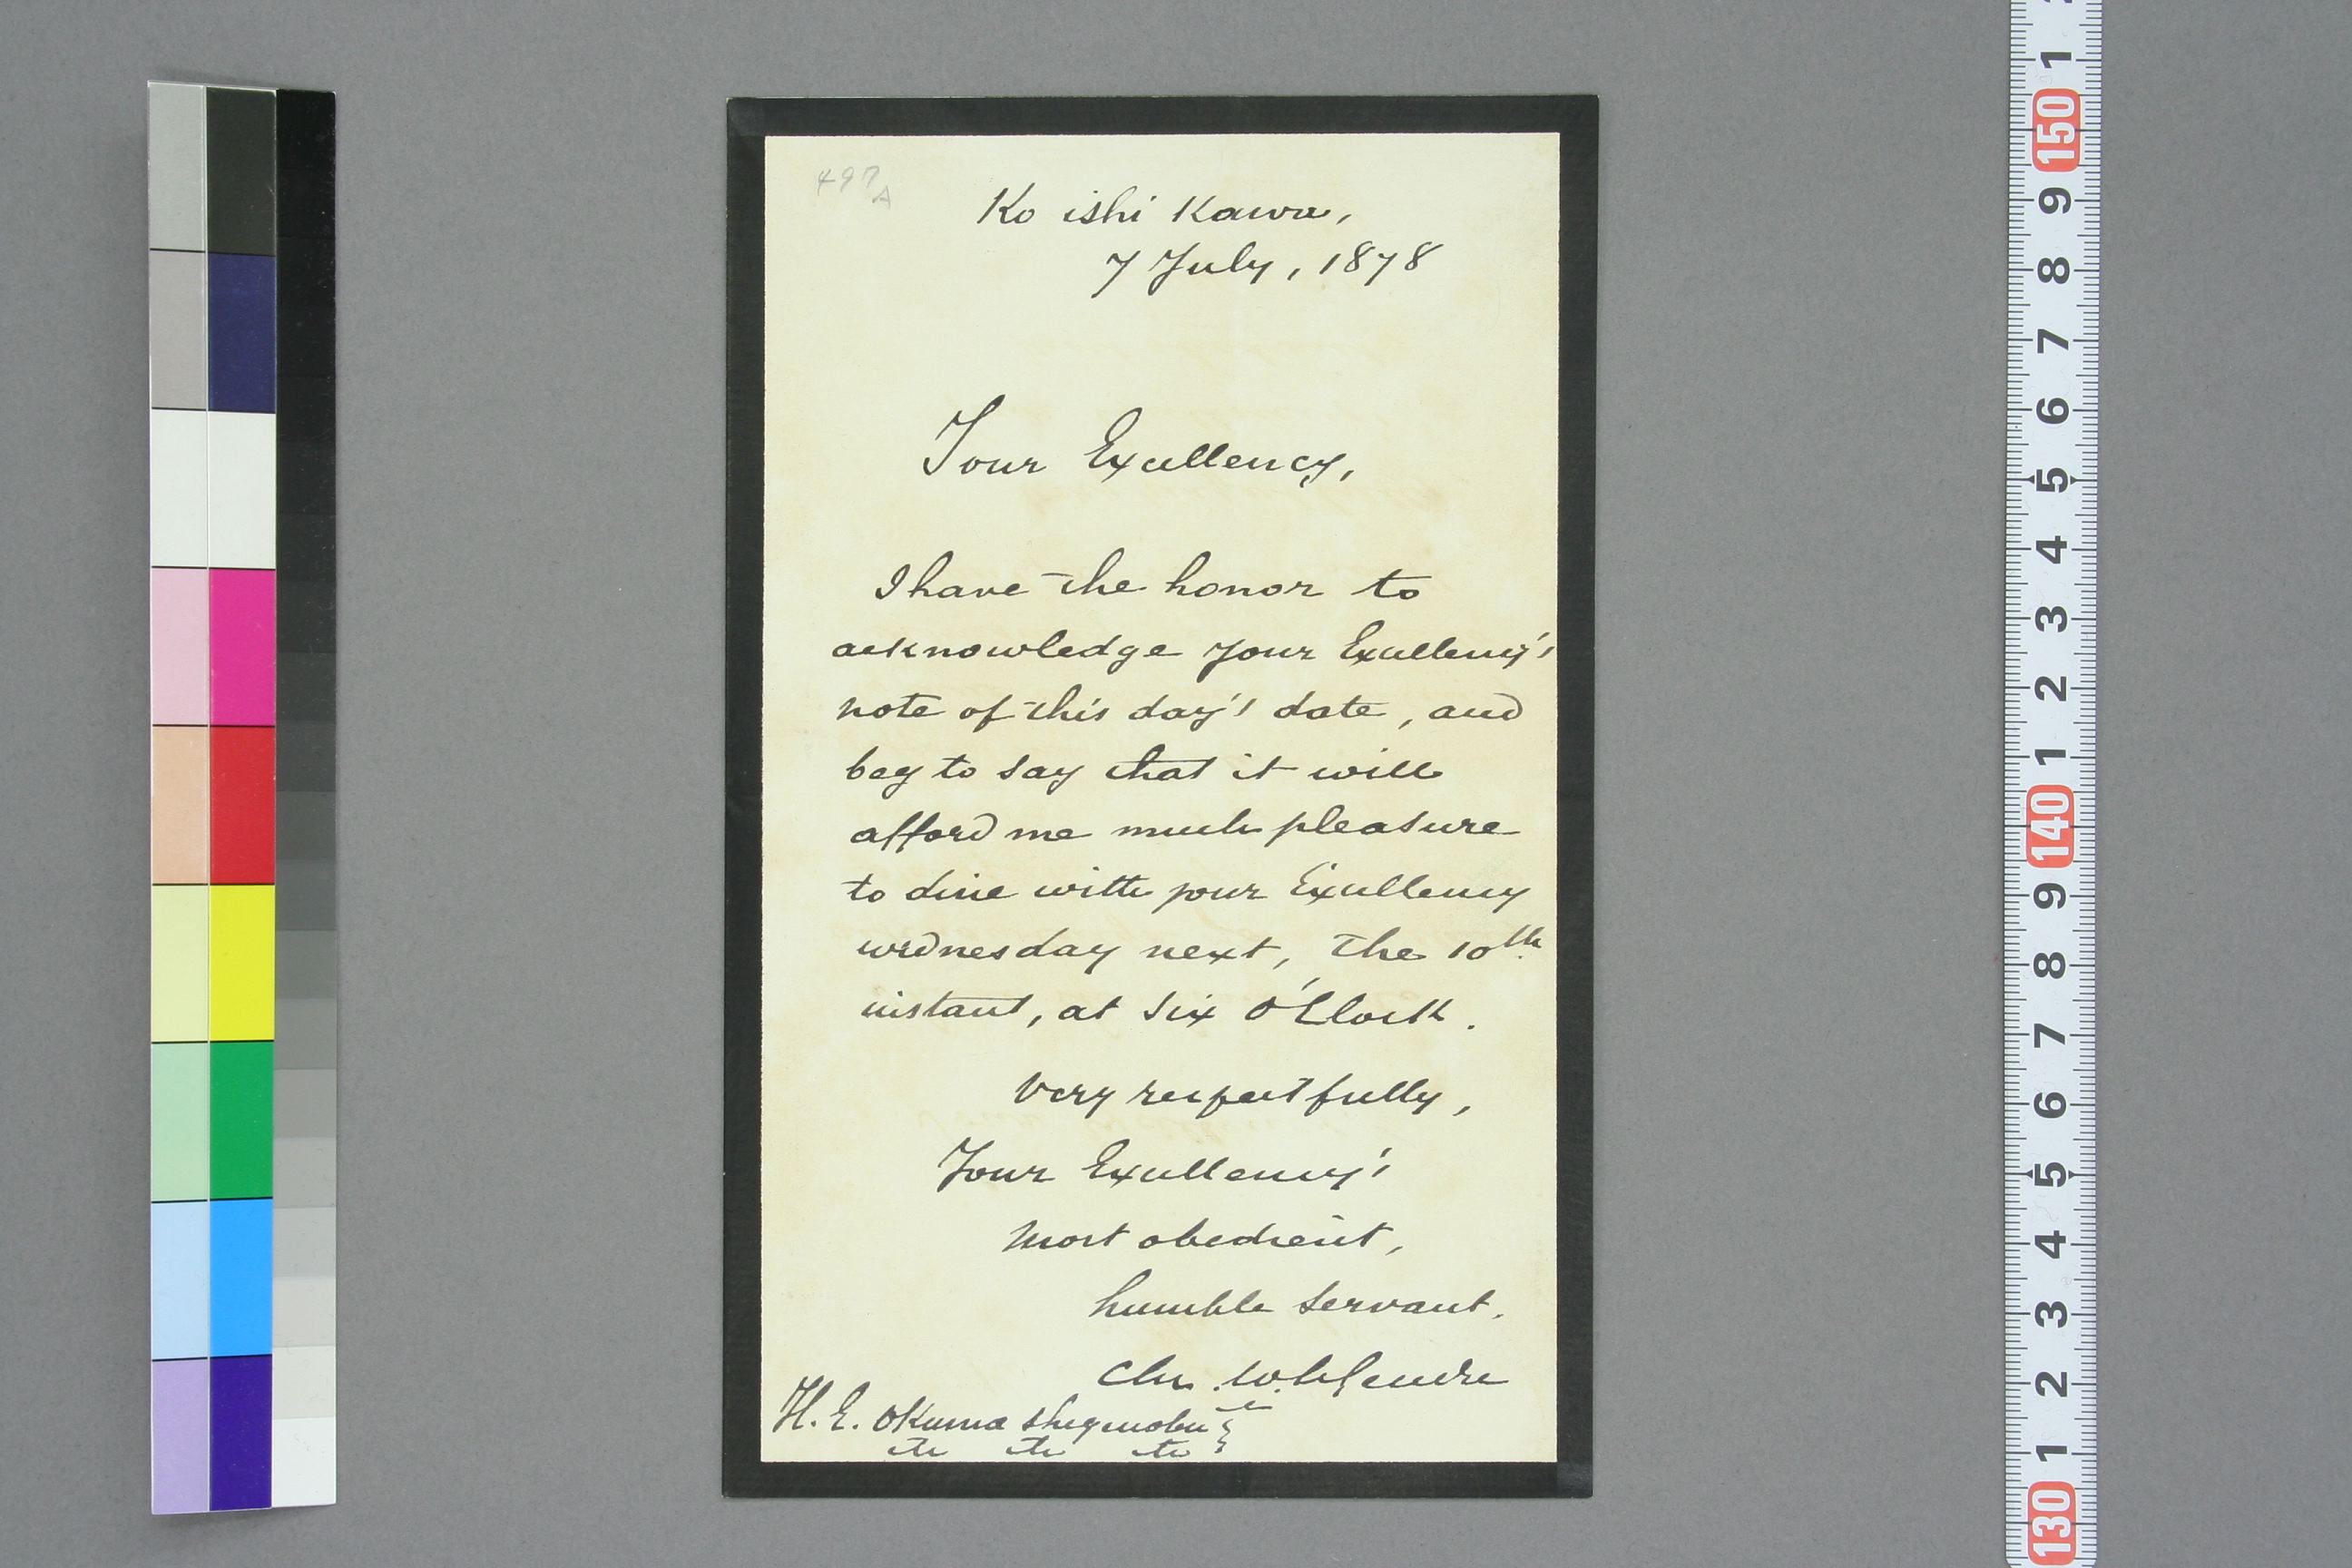 497A
Ko ishi Kawa,
7 July, 1878
Your Excellency,
I have the honor to
acknowledge your Excellency's
note of this day's date, and
beg to say that it will
afford me much pleasure
to dine with your Excellency
wednesday next, the 10th
instant, at six O'Clock.
Very respectfully,
Your Excellency's
most obedient,
humble servant.
Chs. W. LeGendre
H. E. Okuma Shigenobu
etc etc etc
1
150
9
8
7
6
5
4
3
2
1
140
9
8
7
6
5
4
3
2
1
130